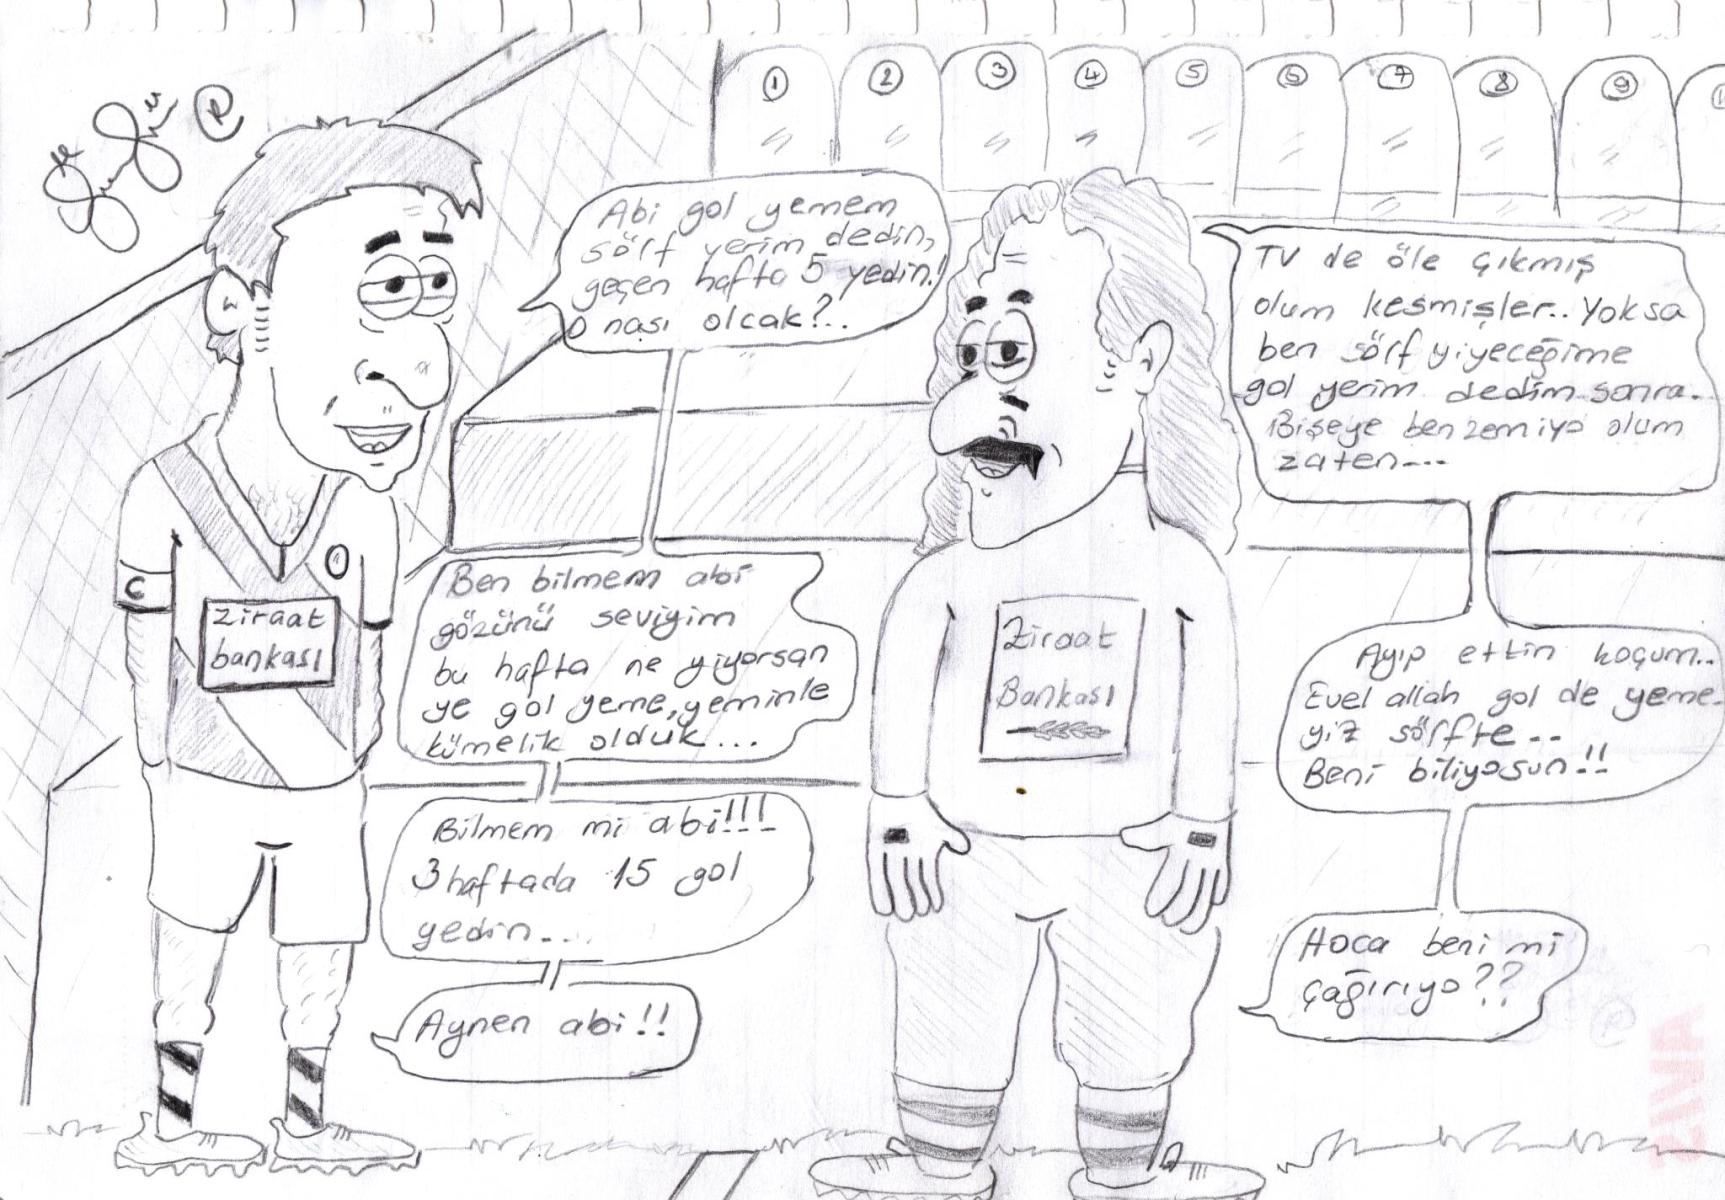 ®
1
2
3
4
5
6
7
8
9
Abi gol yemem
sörf yerim dedin,
geçen hafta 5 yedin!
o nası olcak?..
TV de öle çıkmış
olum kesmişler.. Yoksa
ben sörf yiyeceğime
gol yerim dedim sonra.
Bişeye benzemiyo olum
zaten....
Ben bilmem abi
gözünü seviyim
bu hafta ne yiyorsan
ye gol yeme, yeminle
kümelik olduk...
Ayıp ettin koçum..
Evel allah gol de yeme-
yiz sörfte..
Beni biliyosun!!
Bilmem mi abi!!!
3 haftada 15 gol
yedin....
Hoca beni mi
çağırıyo??
Aynen abi!!
C
Ziraat
bankası
Ziraat
Bankası